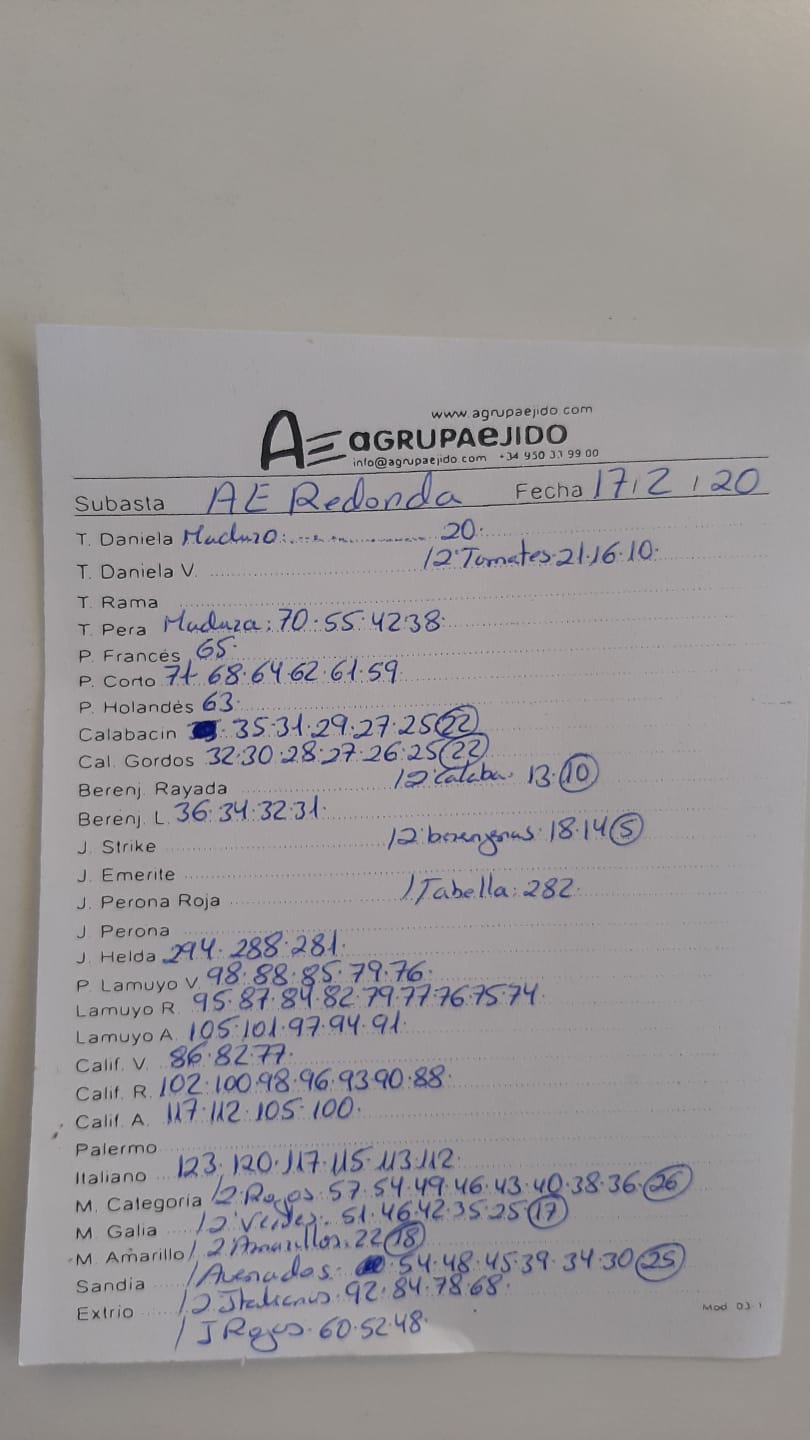 www.agrupaejido.com
AE aGRUPAeJIDO
info@agrupaejido.com +34 950 33 99 00
Subasta AE Redonda Fecha 17/2/20
T. Daniela Maduro: 20.
T. Daniela V. /2ª Tomates. 21.16.10.
T. Rama
T. Pera Madura: 70.55.42.38.
P. Francés 65.
P. Corto 71.68.64.62.61.59
P. Holandés 63.
Calabacin 35.31.29.27.25 (22)
Cal. Gordos 32.30.28.27.26.25 (22)
Berenj. Rayada /2ª Calaba. 13. (10)
Berenj. L. 36.34.32.31.
J. Strike /2ª berengenas. 18.14 (5)
J. Emerite
J. Perona Roja / Tabella: 282.
J Perona
J. Helda 294.288.281.
P. Lamuyo V. 98.88.85.79.76.
Lamuyo R. 95.87.84.82.79.77.76.75.74.
Lamuyo A. 105.101.97.94.91.
Calif. V. 86.82.77.
Calif. R. 102.100.98.96.93.90.88.
Calif. A. 117.112.105.100.
Palermo
Italiano 123.120.117.115.113.112.
M. Categoria /2ª Rojos. 57.54.49.46.43.40.38.36. (26)
M. Galia /2ª Verdes. 51.46.42.35.25 (17)
M. Amarillo /2 Amarillos. 22 (18)
Sandia / Asurados. 54.48.45.39.34.30 (25)
Extrio /2 Italianos. 92.84.78.68.
/ J Rojos. 60.52.48.
Mod. 03.1